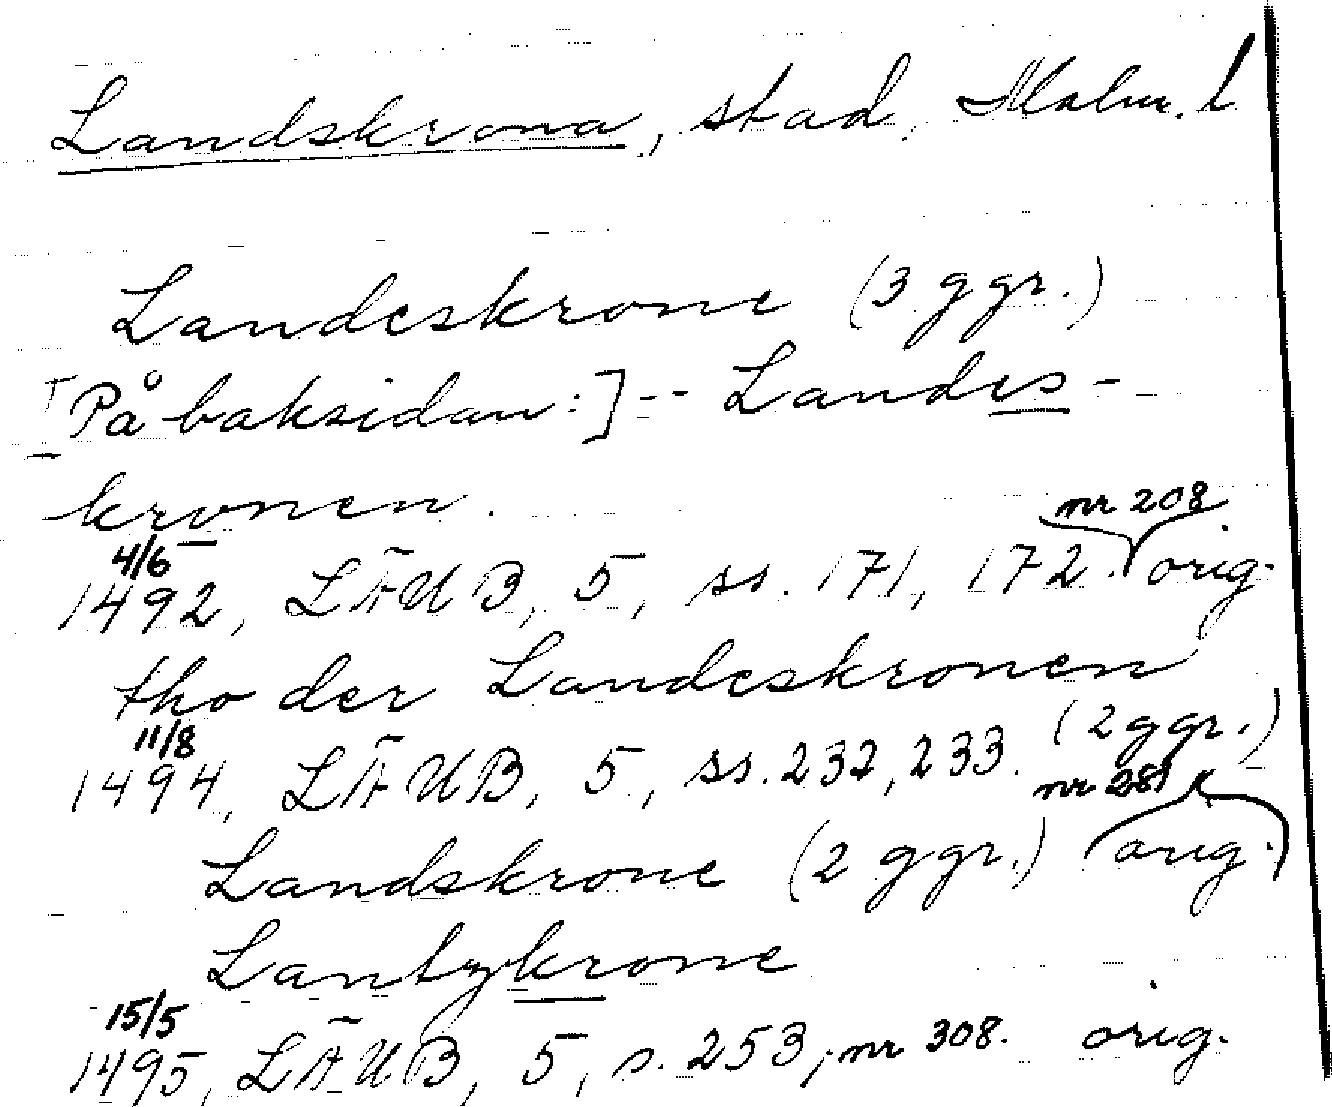 Landskrona, stad, Malm. l
Landeskrone (3 ggr.)
[På baksidan:] -- Landes-
kronen.
nr 208
4/6
1492, LÄUB, 5, ss. 171, 172. orig.
tho der Landeskronen
(2 ggr.)
11/8
1494, LÄUB, 5, ss. 232, 233.
nr 281
Landskrone (2 ggr.) (orig.)
Lantzkrone
15/5
1495, LÄUB, 5, s. 253, nr 308. orig.